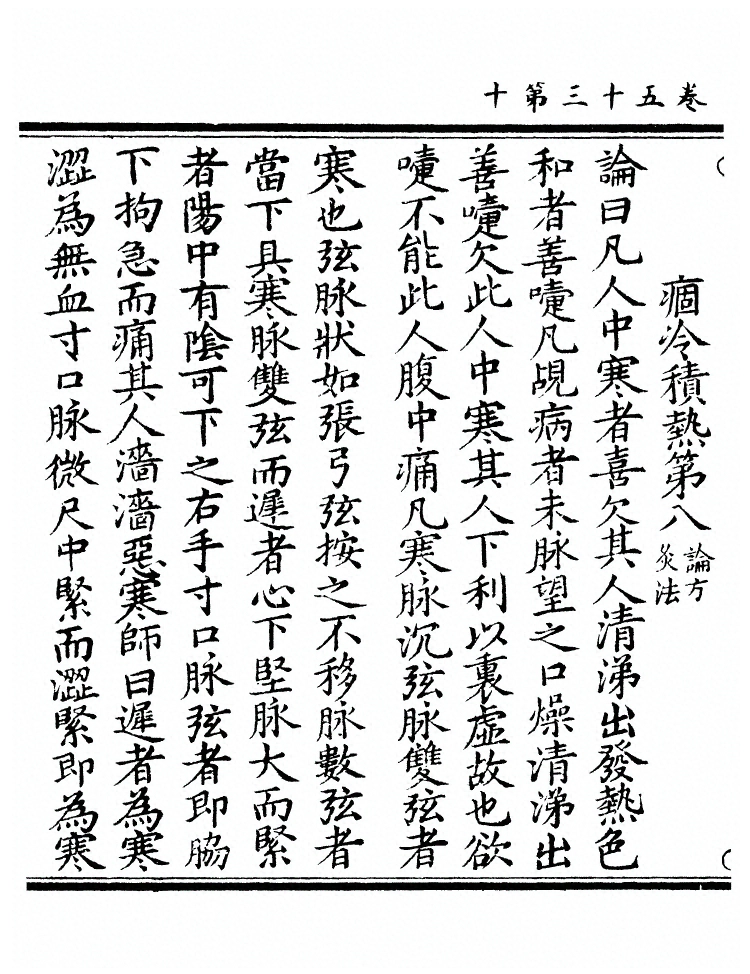 卷五十三第十
痼冷積熱第八 論方 灸法
論曰凡人中寒者喜欠其人清涕出發熱色
和者善嚏凡覘病者未脉望之口燥清涕出
善嚏欠此人中寒其人下利以裏虛故也欲
嚏不能此人腹中痛凡寒脉沉弦脉雙弦者
寒也弦脉狀如張弓弦按之不移脉數弦者
當下具寒脉雙弦而遲者心下堅脉大而緊
者陽中有陰可下之右手寸口脉弦者即脇
下拘急而痛其人濇濇惡寒師曰遲者為寒
澀為無血寸口脉微尺中緊而澀緊即為寒